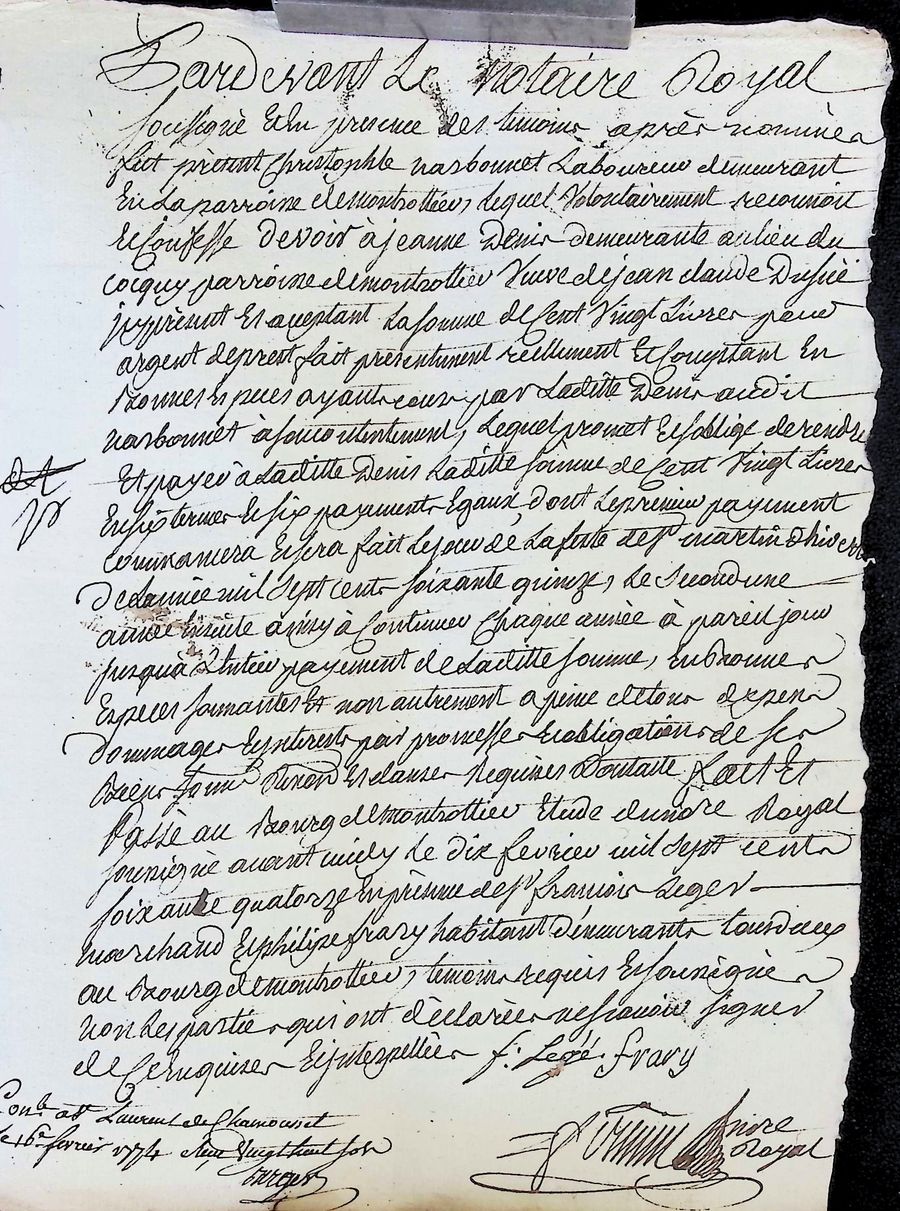 Pardevant Le Notaire Royal
soussigné Et En presence des temoins après nommées
fut présent Christophle narbonnet Laboureur demeurant
En La parroisse de montrottier, lequel Volontairement reconnoit
Et Confesse devoir à jeanne Denis demeurante au lieu du
cocquy parroisse de montrottier Veuve de jean claude Dussié
jcy présent Et aceptant La somme de Cent Vingt Livres pour
argent de prest fait présentement réellement Et Comptant En
Bonnes Especes ayants cours par Laditte Denis audit
narbonnet à son contentement, Lequel promet Et soblige de rendre
Et payer à Laditte Denis Laditte somme de Cent Vingt Livres
En six termes Et six payements Egaux dont Le premier payement
Commancera Et sera fait Le jour de La feste de St martin dhiver
De Lannée mil Sept cents soixante quinze, Le Second une
année Ensuite ainsy à Continuer Chaque année à pareil jour
jusquà L'Entier payement de Laditte somme, En Bonnes
Especes sonnantes Et non autrement a peine de tous depens
Dommages Et interests par promesses Et obligations de ses
Biens Et clauses Requises Dont acte fait Et
Passé au Bourg de montrottier Etude du ndre Royal
soussigné avant midy le dix fevrier mil sept cents
soixante quatorze En présence de Sr francois Leger
marchand Et philipe frary habitant démeurants tous deux
au Bourg de montrottier, temoins requis Et soussignés
non Les parties qui ont déclarées ne scavoir signer
de Ce Enquises Et jnterpellées f. Legé frary
Conlé à St Laurent de Chamousset
le 16e fevrier 1774 Reçu Vingt huit sols
ndre
Royal